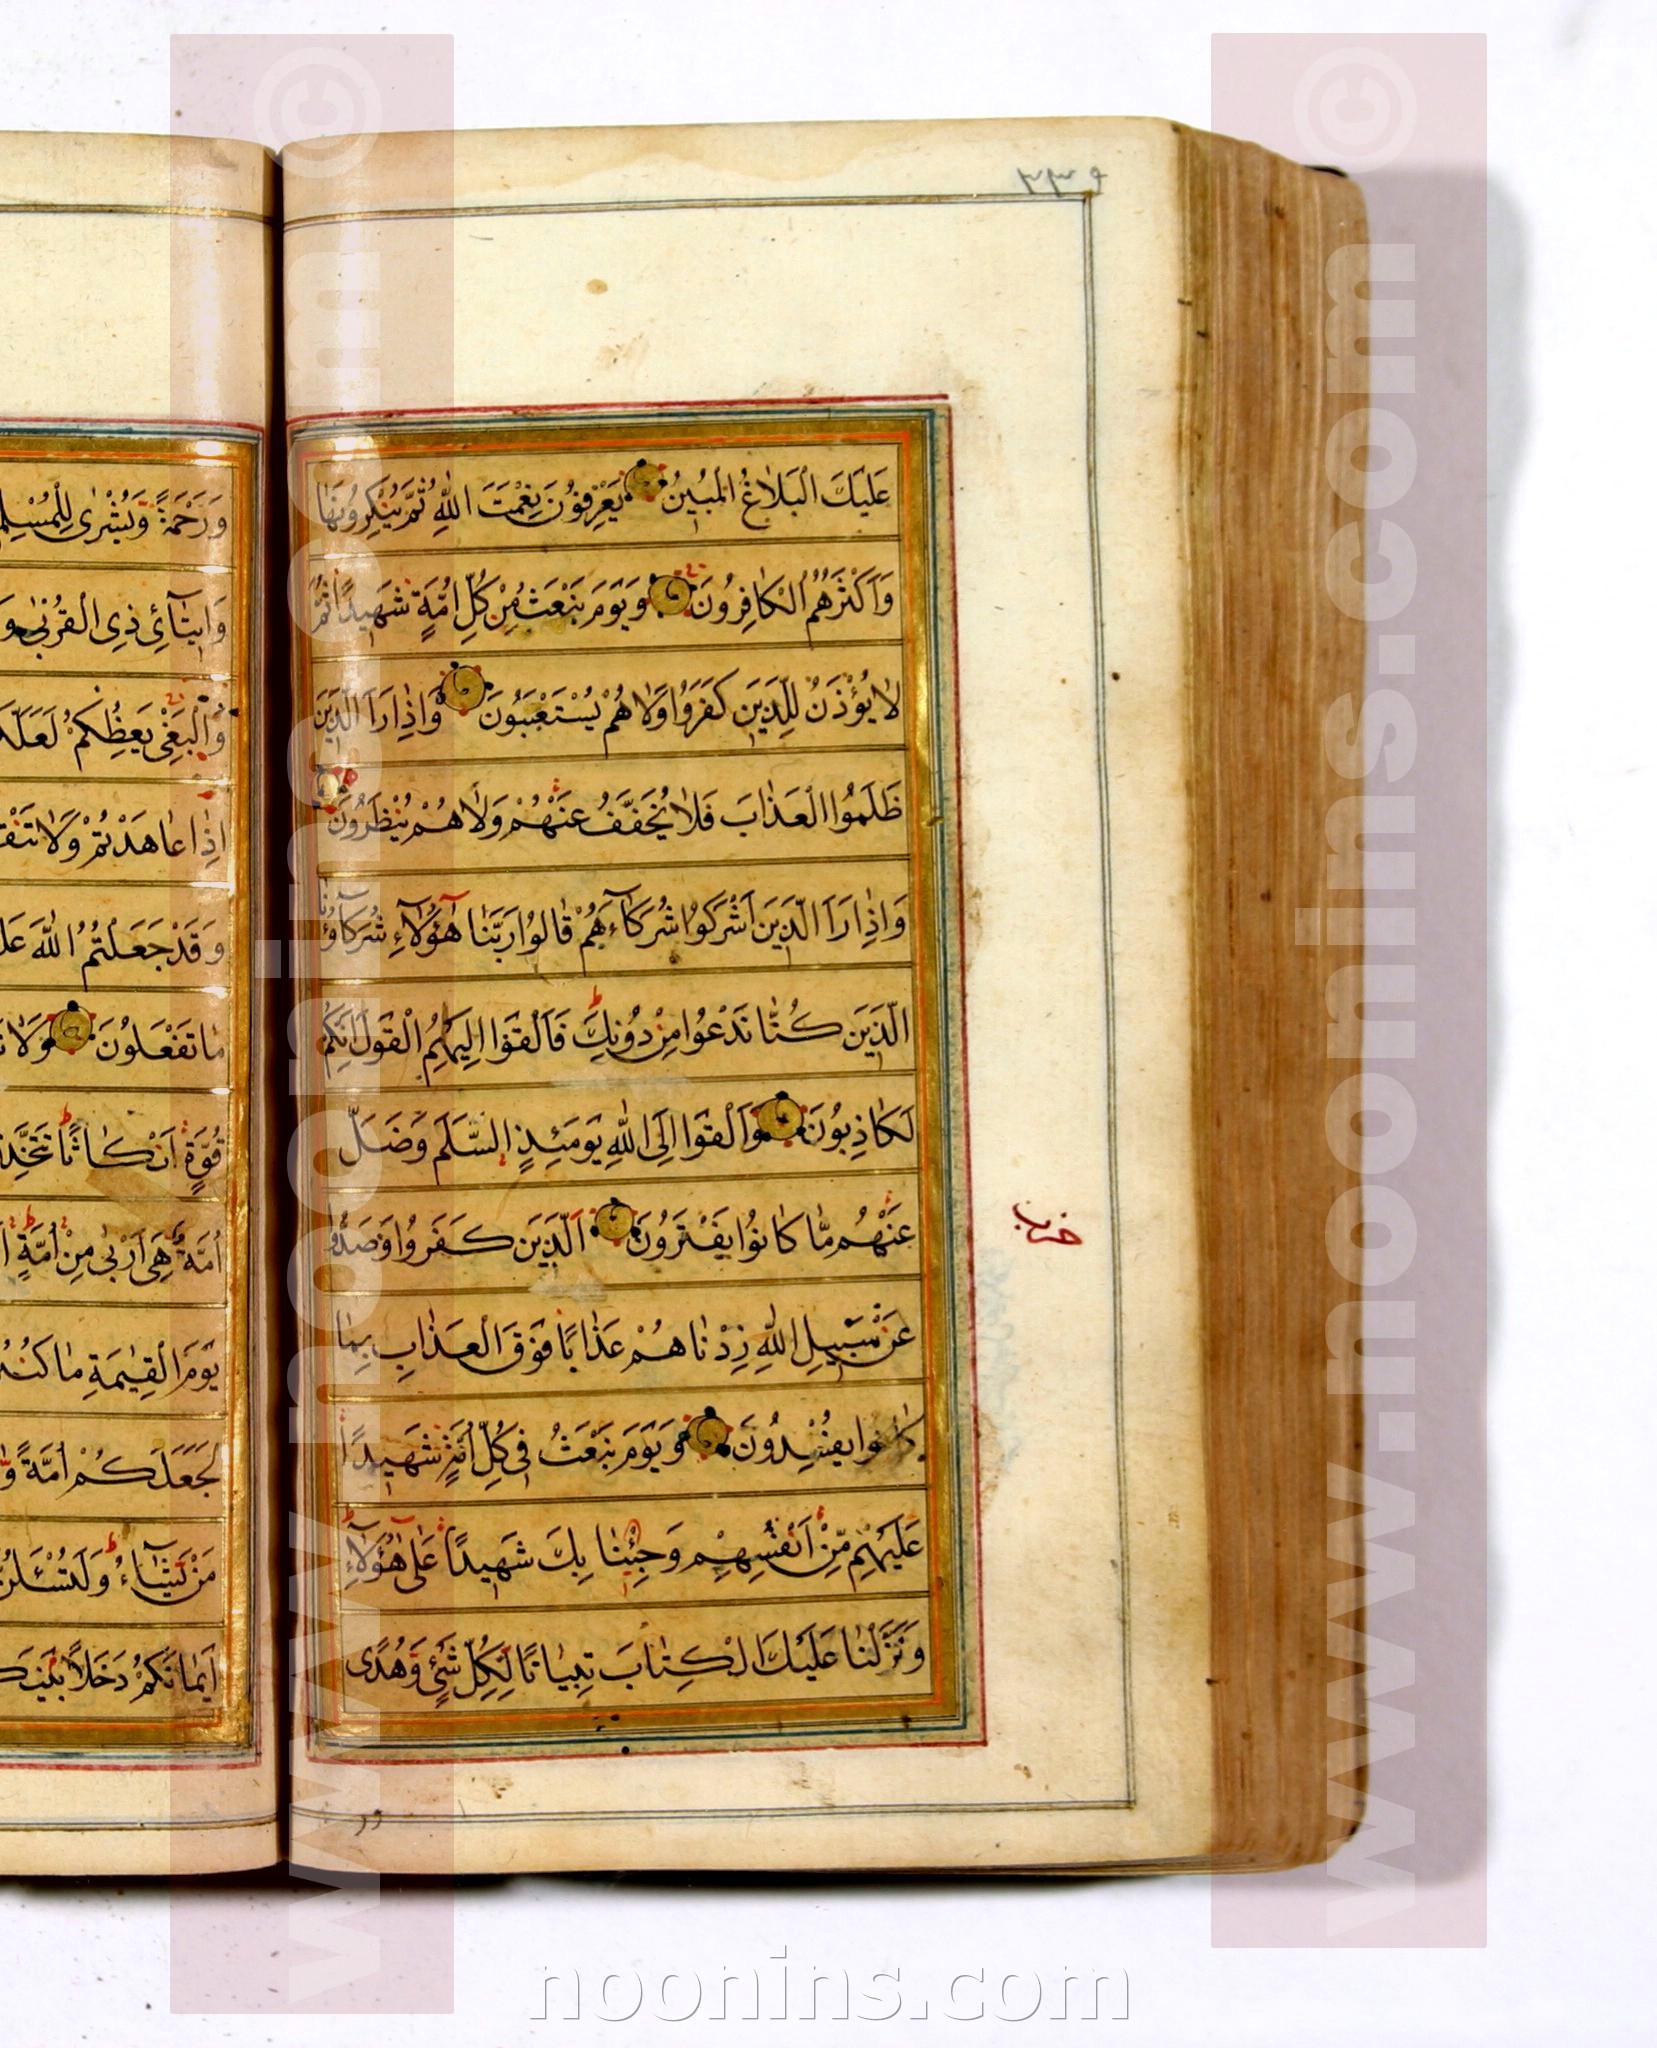 ٣٣٩
عَلَيْكَ الْبَلَاغُ الْمُبِينُ يَعْرِفُونَ نِعْمَتَ اللَّهِ ثُمَّ يُنْكِرُونَهَا
وَأَكْثَرُهُمُ الْكَافِرُونَ وَيَوْمَ نَبْعَثُ مِنْ كُلِّ أُمَّةٍ شَهِيدًا ثُمَّ
لَا يُؤْذَنُ لِلَّذِينَ كَفَرُوا وَلَا هُمْ يُسْتَعْتَبُونَ وَإِذَا رَأَ الَّذِينَ
ظَلَمُوا الْعَذَابَ فَلَا يُخَفَّفُ عَنْهُمْ وَلَا هُمْ يُنْظَرُونَ
وَإِذَا رَأَ الَّذِينَ أَشْرَكُوا شُرَكَاءَهُمْ قَالُوا رَبَّنَا هَؤُلَاءِ شُرَكَاؤُنَا
الَّذِينَ كُنَّا نَدْعُوا مِنْ دُونِكَ فَأَلْقَوْا إِلَيْهِمُ الْقَوْلَ إِنَّكُمْ
لَكَاذِبُونَ وَأَلْقَوْا إِلَى اللَّهِ يَوْمَئِذٍ السَّلَمَ وَضَلَّ
عَنْهُمْ مَّا كَانُوا يَفْتَرُونَ الَّذِينَ كَفَرُوا وَصَدُّوا
حزب
عَنْ سَبِيلِ اللَّهِ زِدْنَاهُمْ عَذَابًا فَوْقَ الْعَذَابِ بِمَا
كَانُوا يُفْسِدُونَ وَيَوْمَ نَبْعَثُ فِي كُلِّ أُمَّةٍ شَهِيدًا
عَلَيْهِمْ مِّنْ أَنْفُسِهِمْ وَجِئْنَا بِكَ شَهِيدًا عَلَى هَؤُلَاءِ
وَنَزَّلْنَا عَلَيْكَ الْكِتَابَ تِبْيَانًا لِّكُلِّ شَيْءٍ وَهُدًى
وَرَحْمَةً وَبُشْرَى
وَإِيتَآئِ ذِي الْقُرْبَى
وَالْبَغْيِ يَعِظُكُمْ
إِذَا عَاهَدْتُمْ وَلَا
وَقَدْ جَعَلْتُمُ اللَّهَ
مَا تَفْعَلُونَ وَلَا
قُوَّةٍ أَنْكَاثًا
أُمَّةٌ هِيَ أَرْبَى مِنْ أُمَّةٍ
يَوْمَ الْقِيَمَةِ مَا
لَجَعَلَكُمْ أُمَّةً
مَنْ يَشَآءُ وَلَتُسْئَلُنَّ
أَيْمَانَكُمْ دَخَلًا
www.noonins.com ©
www.noonins.com ©
noonins.com